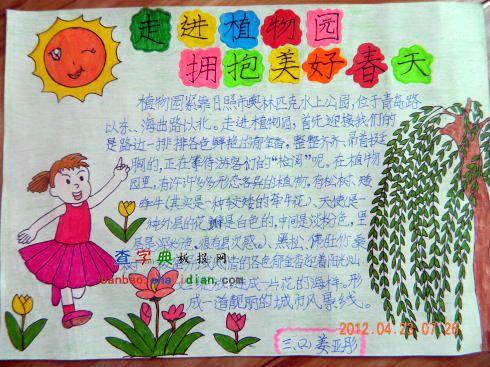 走进植物园
拥抱美好春天
植物园紧靠日照市奥林匹克水上公园，位于青岛路
以东、海曲路以北。走进植物园，首先迎接我们的
是路边一排排各色鲜艳的郁金香，整整齐齐、昂首挺
胸的，正在等待游客们的“检阅”呢。在植物
园里，有许许多多形态各异的植物，有松树、矮
牵牛（其实是一种较矮的牵牛花）、天使（是一
种外层的花瓣是白色的，中间是淡粉色，里
层是深粉色，很有层次感。）、黑松、佛肚竹
的各色郁金香迎着阳光灿
成一片花的海洋。形
成一道靓丽的城市风景线。
查字典板报网
banbao.chazidian.com
2012.04.23 07:26
三、(2) 姜亚彤